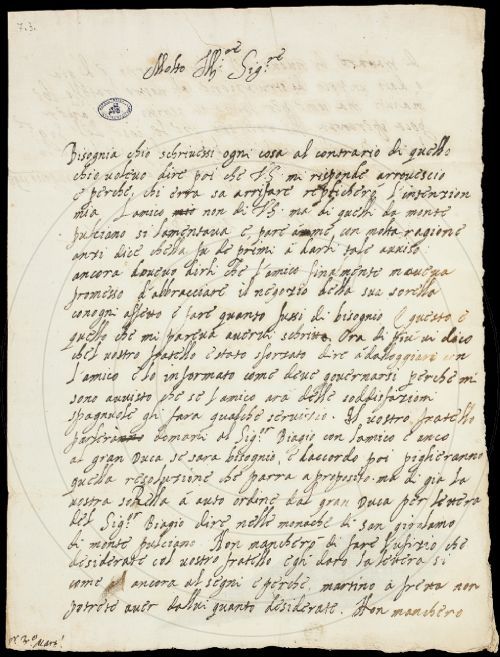 7.3.
Molto Ill.re Sig.re
Bisognia chio schrivessi ogni cosa al contrario di quello
chio volevo dire poi che VS mi risponde arrovescio
e perche chi erra sa arrifare replichero l'intenzion
mia l'amico non di VS. ma di quelli da monte
pulciano si lamentava e pare con molta ragione
anzi dice chella fu de primi a darli tale aviso
ancora dovevo dirli che l'amico finamente maveva
promesso d'abbracciare il negozio della sua sorella
conogni affetto e fare quanto fussi di bisognio e questo e
quello che mi pareva avervi schritto. Ora di più vi dico
chel vostro fratello e stato sforzato dire a dalloggiare con
l'amico e lo informato come deve governarsi perche mi
sono avvisto che se l'amico ara delle soddisfazioni
spagnuole gli fara qualche servitio. Il vostro fratello
domani al Sig.r Biagio con l'amico e anco
al gran Duca se sara bisognio, e daccordo poi piglieranno
quella resoluzione che parra a proposito. ma di gia la
vostra sorella à auto ordine dal gran Duca per lettera
del Sig.r Biagio dire nelle monache di san girolamo
di monte pulciano Non manchero di fare l'ufizio che
desiderate col vostro fratello e gli dato la lettera si
come ancora al segni e perche martino à fretta non
potrete aver dallui quanto desiderate. Non manchero